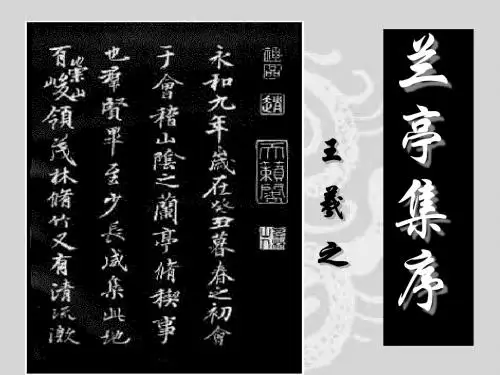 兰亭集序
王羲之
永和九年歲在癸丑暮春之初會
于會稽山陰之蘭亭脩稧事
也羣賢畢至少長咸集此地
有崇山峻領茂林脩竹又有清流激
神品
天籟閣